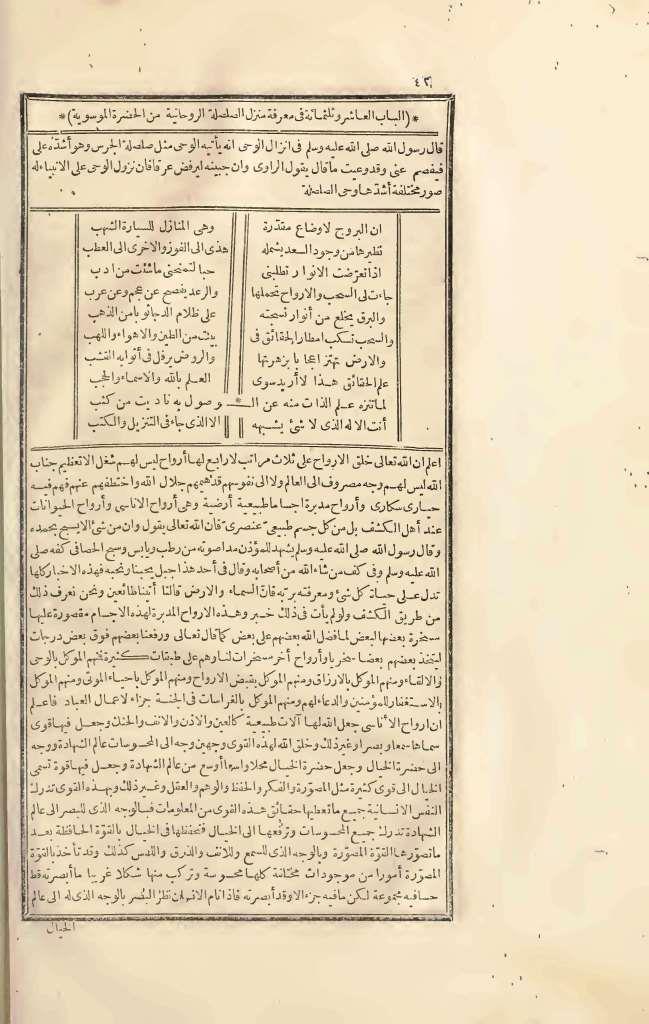 ٤٢
*(الباب العاشر وثلثمائة فى معرفة منزل الصلصلة الروحانية من الحضرة الموسوية)*
قال رسول الله صلى الله عليه وسلم فى انزال الوحى انه يأتيه الوحى مثل صلصلة الجرس وهو أشدّه على
فيفصم عنى وقد وعيت ما قال يقول الراوى وان جبينه ليرفض عرقا فان نزول الوحى على الانبياء له
صور مختلفة أشدّها وحى الصلصلة
ان البروج لاوضاع مقدّرة وهى المنازل للسيارة الشهب
تظهرها من وجود السعد يشمله هذى الى الفوز والاخرى الى العطب
اذا تعرّضت الانوار تطلبنى حبا لتمنحنى ما شئت من ادب
جاءت لى السحب والارواح تحملها والرعد يفصح عن عجم وعن عرب
والبرق يخلع من أنوار نسجته على ظلام الدجا ثوبا من الذهب
والسحب تسكب امطار الحقائق فى بيت من الطين والاهواء واللهب
والارض تهتز اعجابا بزهرتها والروض يرفل فى أثوابه القشب
علم الحقائق هذا لا أريد سوى العلم بالله والاسماء والحجب
لما تنزه علم الذات منه عن الـ ـوصول به ناديت من كثب
أنت الاله الذى لا شئ يشبهه الا الذى جاء فى التنزيل والكتب
اعلم ان الله تعالى خلق الارواح على ثلاث مراتب لا رابع لها أرواح ليس لهم شغل الا تعظيم جناب
الله ليس لهم وجه مصروف الى العالم ولا الى نفوسهم قد هيمهم جلال الله واختطفهم عنهم فهم فيه
حيارى سكارى وأرواح مدبرة اجساما طبيعية أرضية وهى أرواح الاناسى وأرواح الحيوانات
عند أهل الكشف بل من كل جسم طبيعى عنصرى فان الله تعالى يقول وان من شئ الا يسبح بحمده
وقال رسول الله صلى الله عليه وسلم يشهد للمؤذن مدا صوته من رطب ويابس وسبح الحصا فى كفه صلى
الله عليه وسلم وفى كف من شاء الله من أصحابه وقال فى أحد هذا جبل يحبنا ونحبه فهذه الاخبار كلها
تدل على حياة كل شئ ومعرفته بربه فانّ السماء والارض قالتا أتينا طائعين ونحن نعرف ذلك
من طريق الكشف ولو لم يأت فى ذلك خبر وهذه الارواح المدبرة لهذه الاجسام مقصورة عليها
مسخرة بعضها لبعض لما فضل الله بعضهم على بعض كما قال تعالى ورفعنا بعضهم فوق بعض درجات
ليتخذ بعضهم بعضا سخريا وأرواح أخر مسخرات لنا وهم على طبقات كثيرة فمنهم الموكل بالوحى
والالقاء ومنهم الموكل بالارزاق ومنهم الموكل بقبض الارواح ومنهم الموكل باحياء الموتى ومنهم الموكل
بالاستغفار للمؤمنين والدعاء لهم ومنهم الموكل بالغراسات فى الجنة جزاء لاعمال العباد فاعلم
ان ارواح الاناسى جعل الله لها آلات طبيعية كالعين والاذن والانف والحنك وجعل فيها قوى
سماها سمعا وبصرا وغير ذلك وخلق الله لهذه القوى وجهين وجه الى المحسوسات عالم الشهادة ووجه
الى حضرة الخيال وجعل حضرة الخيال محلا واسعا أوسع من عالم الشهادة وجعل فيها قوة تسمى
الخيال الى قوى كثيرة مثل المصوّرة والفكر والحفظ والوهم والعقل وغير ذلك وبهذه القوى تدرك
النفس الانسانية جميع ما تعطيها حقائق هذه القوى من المعلومات فبالوجه الذى للبصر الى عالم
الشهادة تدرك جميع المحسوسات وترفعها الى الخيال فتحفظها فى الخيال بالقوّة الحافظة بعد
ما تصوّرها القوّة المصوّرة وبالوجه الذى للسمع وللانف والذوق واللمس كذلك وقد تأخذ بالقوّة
المصوّرة أمورا من موجودات مختلفة كلها محسوسة وتركب منها شكلا غريبا ما أبصرته قط
حسا فيه مجموعة لكن ما فيه جزء الا وقد أبصرته فاذا نام الانسان نظر البصر بالوجه الذى له الى عالم
الخيال